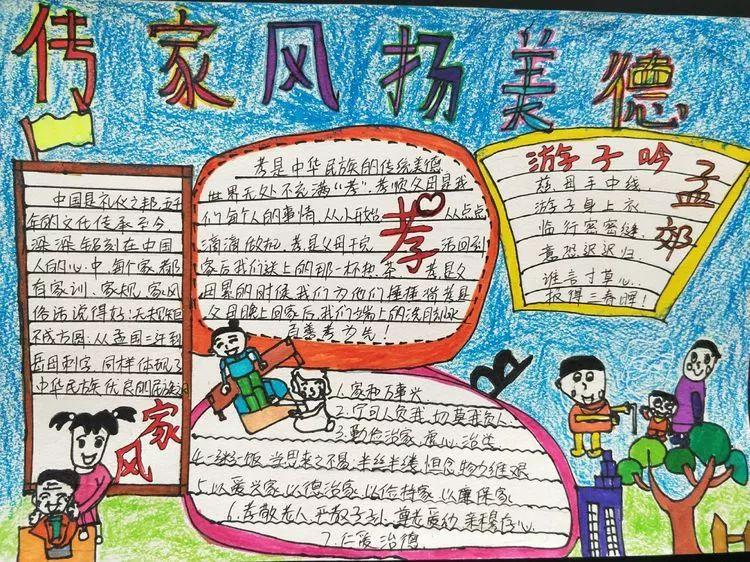 传家风扬美德
中国是礼仪之邦,五千
年的文化传承至今
深深铭刻在中国
人的心中,每个家都
有家训、家规、家风
俗话说得好:无规矩
不成方圆:从孟母三迁到
岳母刺字,同样体现了
中华民族优良的
家风
孝是中华民族的传统美德
世界无处不充满“孝”,孝顺父母是我
们每个人的事情,从小开始 从点点
滴滴做起,孝是父母干完 活回到
家后我们送上的那一杯热茶 孝是父
母累的时候我们为他们捶捶背孝是
父母晚上回家后我们端上的洗脚水
百善孝为先!
孝
游子吟
孟郊
慈母手中线,
游子身上衣
临行密密缝,
意恐迟迟归,
谁言寸草心,
报得三春晖!
1.家和万事兴
2.宁可人负我,切莫我负人
3.勤俭治家,
4.一粥一饭,当思来之不易,半丝半缕,恒念物力维艰
5.以爱兴家,以德治家,以俭持家,以廉保家
6.孝敬老人,
7.仁爱治德